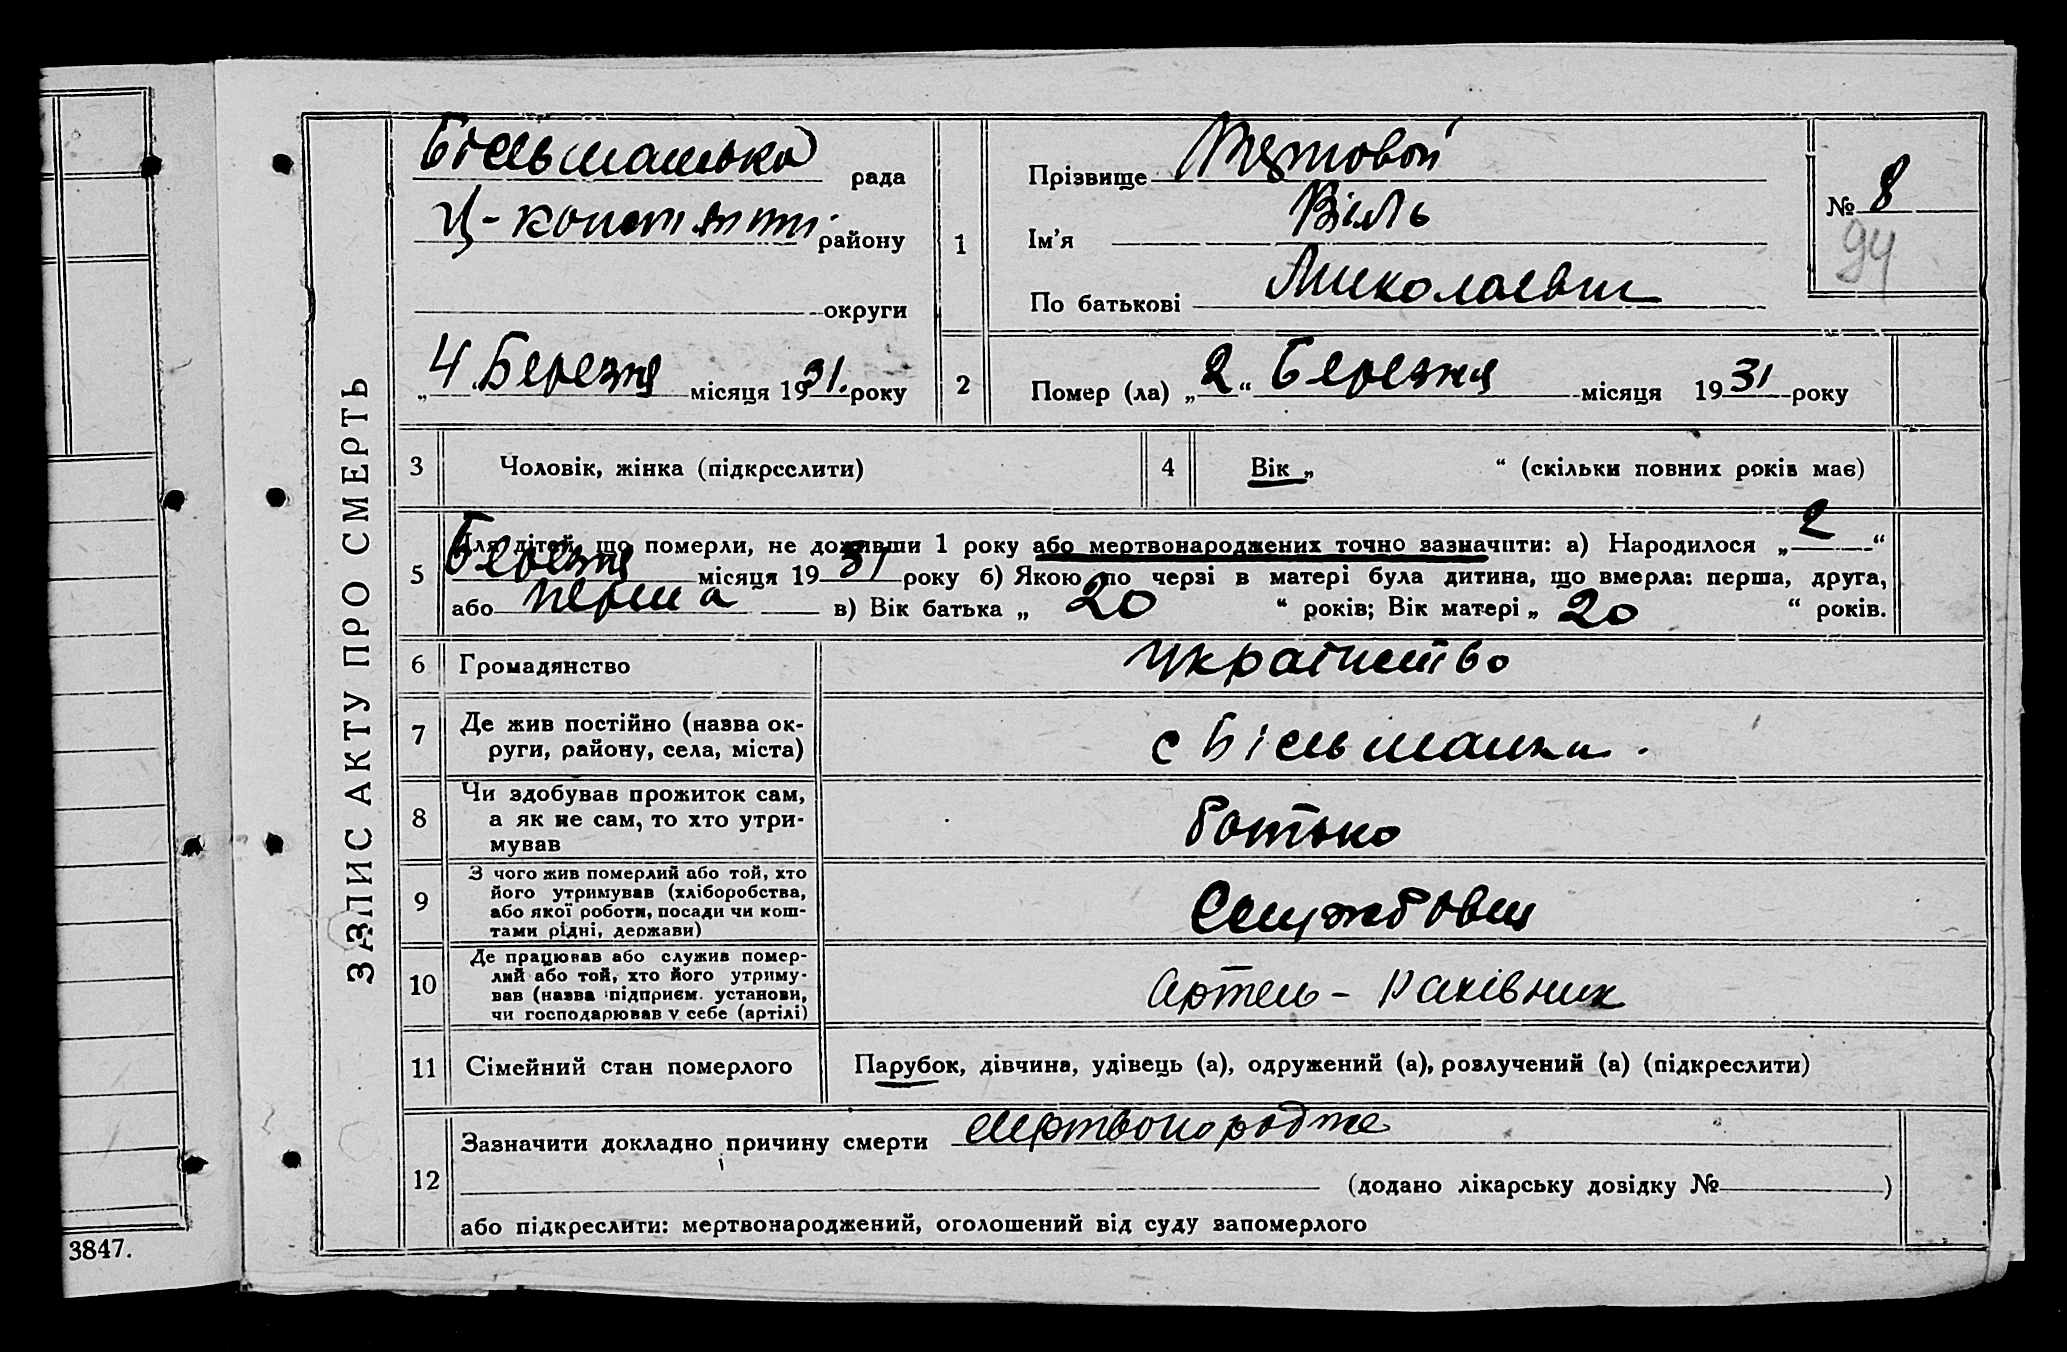 ЗАПИС АКТУ ПРО СМЕРТЬ
Більшанська рада
Ц-Констянт. району
округи
„ 4 Березня місяця 1931. року
1
Прізвище
Ім’я Віль
По батькові Миколаевич
№ 8
94
2 Помер (ла) „ 2 “ Березня місяця 1931 року
3 Чоловік, жінка (підкреслити)
4 Вік „ “ (скільки повних років має)
5 Для дітей, що померли, не доживши 1 року або мертвонароджених точно зазначити: а) Народилося „ 2 “
Березня місяця 1931 року б) Якою по черзі в матері була дитина, що вмерла: перша, друга,
або перша в) Вік батька „ 20 “ років; Вік матері „ 20 “ років.
6 Громадянство Українство
7 Де жив постійно (назва ок-
руги, району, села, міста) с Більшанки.
8 Чи здобував прожиток сам,
а як не сам, то хто утри-
мував батько
9 З чого жив померлий або той, хто
його утримував (хліборобства,
або якої роботи, посади чи кош-
тами рідні, держави) Службовец
10 Де працював або служив помер-
лий або той, хто його утриму-
вав (назва підприєм. установи,
чи господарював у себе (артілі) Артель - Рахівник
11 Сімейний стан померлого Парубок, дівчина, удівець (а), одружений (а), розлучений (а) (підкреслити)
12 Зазначити докладно причину смерти мертвонородже
(додано лікарську довідку № )
або підкреслити: мертвонароджений, оголошений від суду запомерлого
3847.